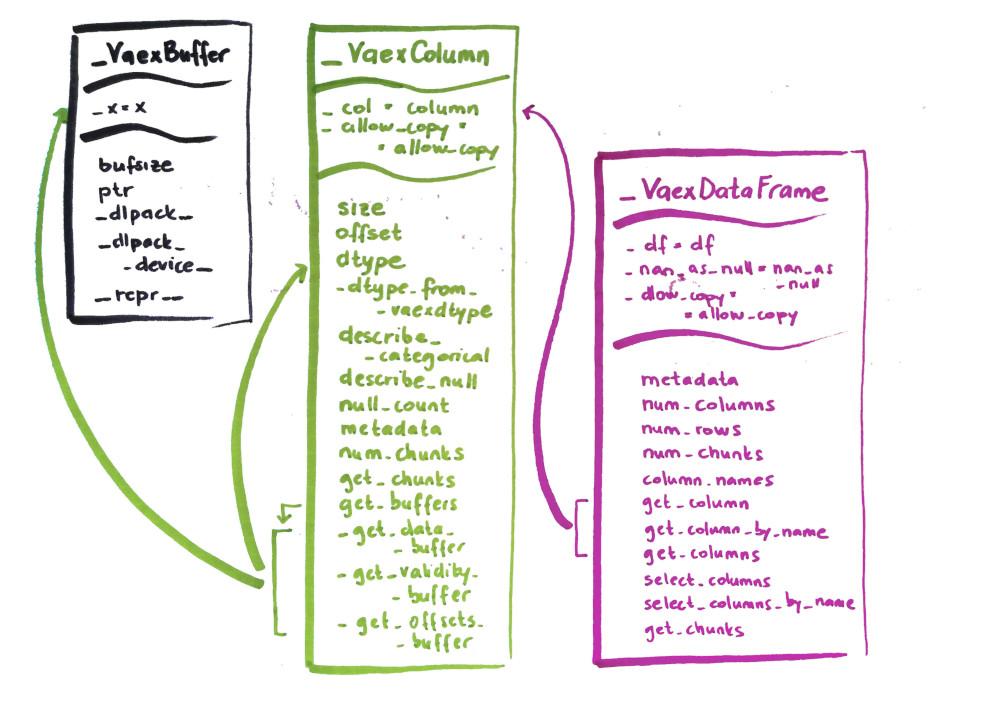 _VaexBuffer
_x = x
bufsize
ptr
_dlpack_
_dlpack_
_device_
_repr__
_VaexColumn
_ col = column
_ allow_copy =
= allow_copy
size
offset
dtype
_dtype_from_
_vaexdtype
describe_
_categorical
describe_null
null_count
metadata
num_chunks
get_chunks
get_buffers
_get_data_
_buffer
_get_validity_
_buffer
_get_offsets_
_buffer
_VaexDataFrame
_ df = df
_ nan_as_null = nan_as
_null
_ allow_copy =
= allow_copy
metadata
num_columns
num_rows
num_chunks
column_names
get_column
get_column_by_name
get_columns
select_columns
select_columns_by_name
get_chunks